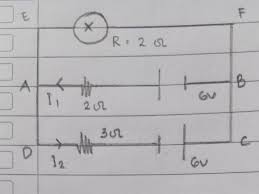 E F
R = 2 Ω
A B
I1 2Ω 6V
3Ω
D C
I2 6V